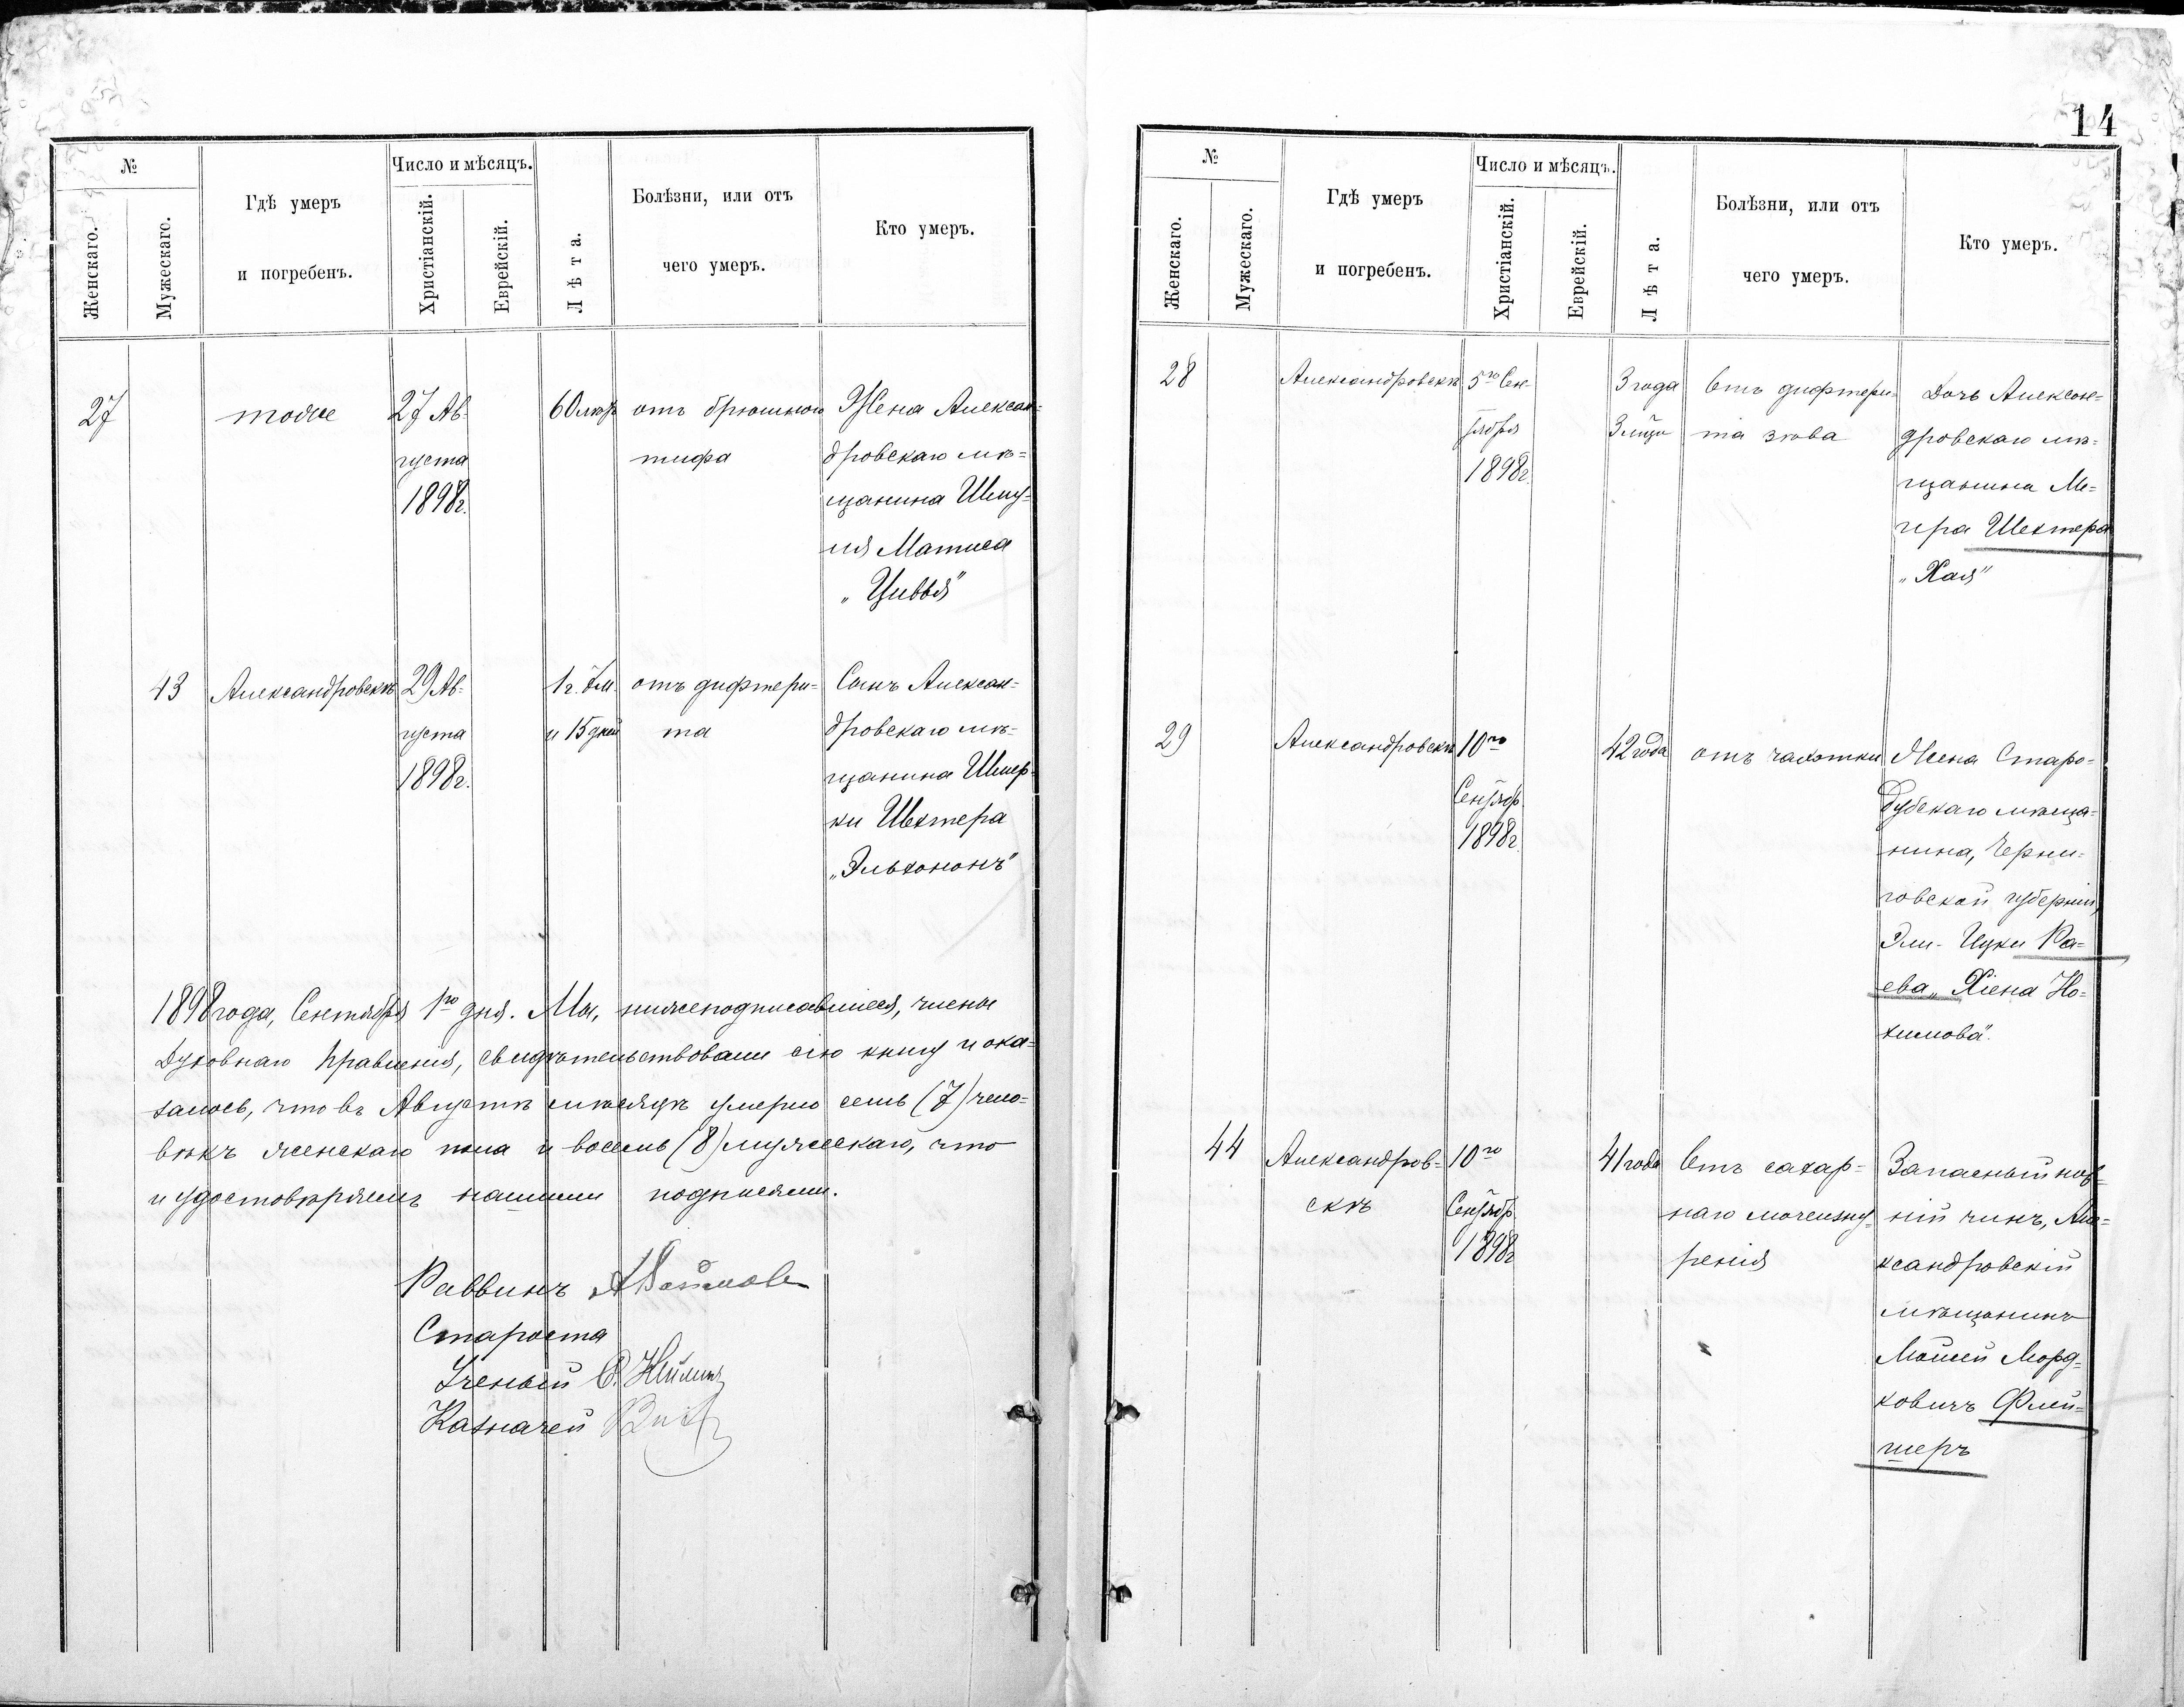 14
№
Число и мѣсяцъ.
Женскаго.
Мужескаго.
Гдѣ умеръ
и погребенъ.
Христіанскій.
Еврейскій.
Лѣта.
Болѣзни, или отъ
чего умеръ.
Кто умеръ.
27
тоже
27 Ав-
густа
1898г.
60 лѣтъ
отъ брюшного
тифа
Жена Алексан-
дровскаго мѣ-
щанина Шму-
ля Матиса
"Цивья"
43
Александровскъ
29 Ав-
густа
1898г.
1г. 7м.
и 15 дней
отъ дифтери-
та
Сынъ Алексан-
дровскаго мѣ-
щанина Шмер-
ки Шехтера
"Эльхононъ"
1898 года, Сентября 1го дня. Мы, нижеподписавшіеся, члены
Духовнаго Правленія, свидѣтельствовали сію книгу и ока-
залось, что въ Августѣ мѣсяцѣ умерло семь (7) чело-
вѣкъ женскаго пола и восемь (8) мужескаго, что
и удостовѣряемъ нашими подписями.
Раввинъ
Староста
Ученый
Казначей
№
Число и мѣсяцъ.
Женскаго.
Мужескаго.
Гдѣ умеръ
и погребенъ.
Христіанскій.
Еврейскій.
Лѣта.
Болѣзни, или отъ
чего умеръ.
Кто умеръ.
28
Александровскъ
5го Сен-
тября
1898г.
3 года
3 мѣсяц
Отъ дифтери-
та зѣва
Дочь Алексан-
дровскаго мѣ-
щанина Ме-
ера Шехтера
"Хая"
29
Александровскъ
10го
Сентябр.
1898г.
42 года
отъ чахотки
Жена Старо-
дубскаго мѣща-
нина, Черни-
говской губерніи,
Эли-Ицки Ра-
ева, "Хіена Но-
химова".
44
Александров-
скъ
10го
Сентябр.
1898г
41 года
Отъ сахар-
наго мочеизну-
ренія
Запасный ниж-
ній чинъ, Але-
ксандровскій
мѣщанинъ
Мовшей Морд-
ковичъ Флей-
шеръ